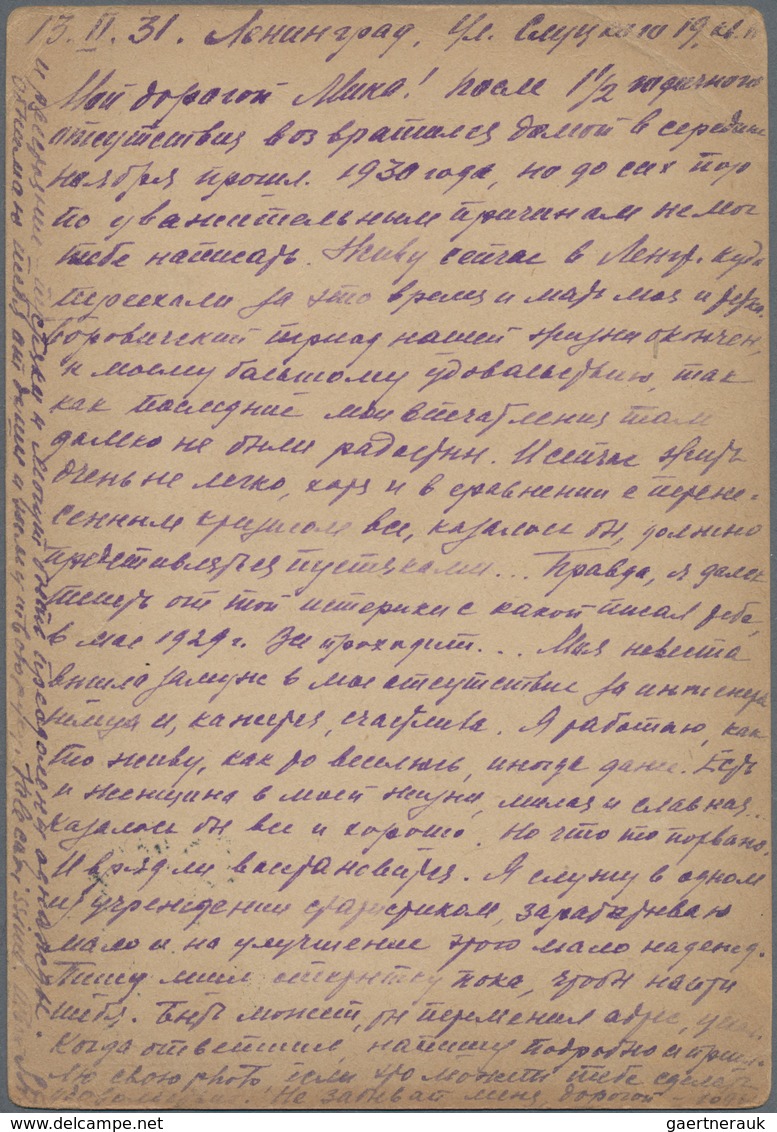 13.II.31. Ленинград, ул. Слуцкого 19, кв.
Мой дорогой Мика! После 1 1/2 годичного
отсутствия возвратился домой в середине
ноября прошл. 1930 года, но до сих пор
по уважительным причинам не мог
тебе написать. Живу сейчас в Ленгр. куда
переехали за это время и мать моя и
Боровический период нашей жизни окончен,
к моему большому удовольствию, так
как последние мои впечатления там
далеко не были радостны. И сейчас жить
очень не легко, хотя и в сравнении с перене-
сенным кризисом все, казалось бы, должно
представляться пустяками... Правда, я далек
теперь от той истерики с какой писал тебе,
в мае 1929 г. Все проходит... Моя невеста
вышла замуж в мое отсутствие за инженера
немца и, кажется, счастлива. Я работаю, как
то живу, как то веселюсь, иногда даже. Есть
и женщина в моей жизни, милая и славная.
Казалось бы все и хорошо. Но что то порвано.
И вряд ли восстановится. Я служу в одном
из учреждений статистиком, зарабатываю
мало и на улучшение этого мало надежд.
Пишу мил. открытку пока, чтобы найти
тебя. Быть может, ты переменил адрес,
Когда ответишь, напишу подробно и приш-
лю свою photo если это может тебе сделать
удовольствие. Не забывай меня, дорогой